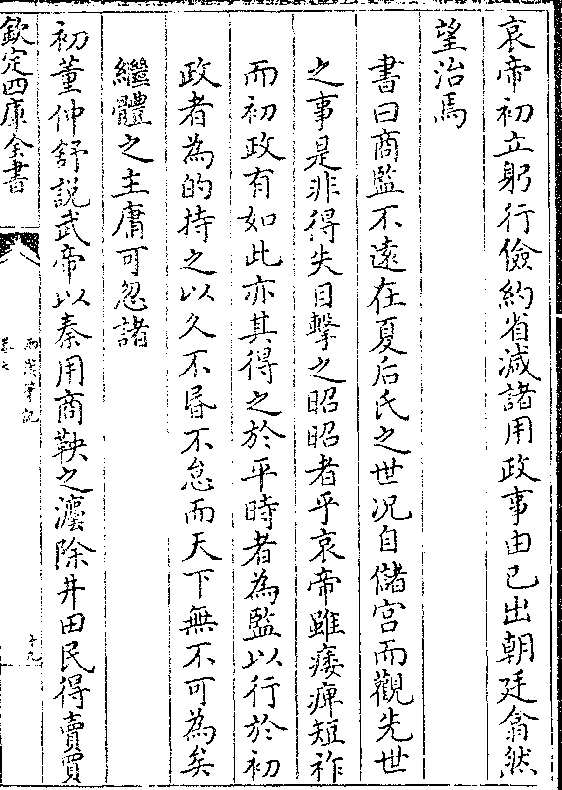 哀帝初立躬行儉約省減諸用政事由己出朝廷翕然
望治焉
書曰商監不遠在夏后氏之世况自儲宫而觀先世
之事是非得失目擊之昭昭者乎哀帝雖痿痺短祚
而初政有如此亦其得之於平時者為監以行於初
政者為的持之以久不昬不怠而天下無不可為矣
繼體之主庸可忽諸
初董仲舒説武帝以秦用商鞅之灋除井田民得賣買
欽定四庫全書
兩漢筆記
卷七
十九